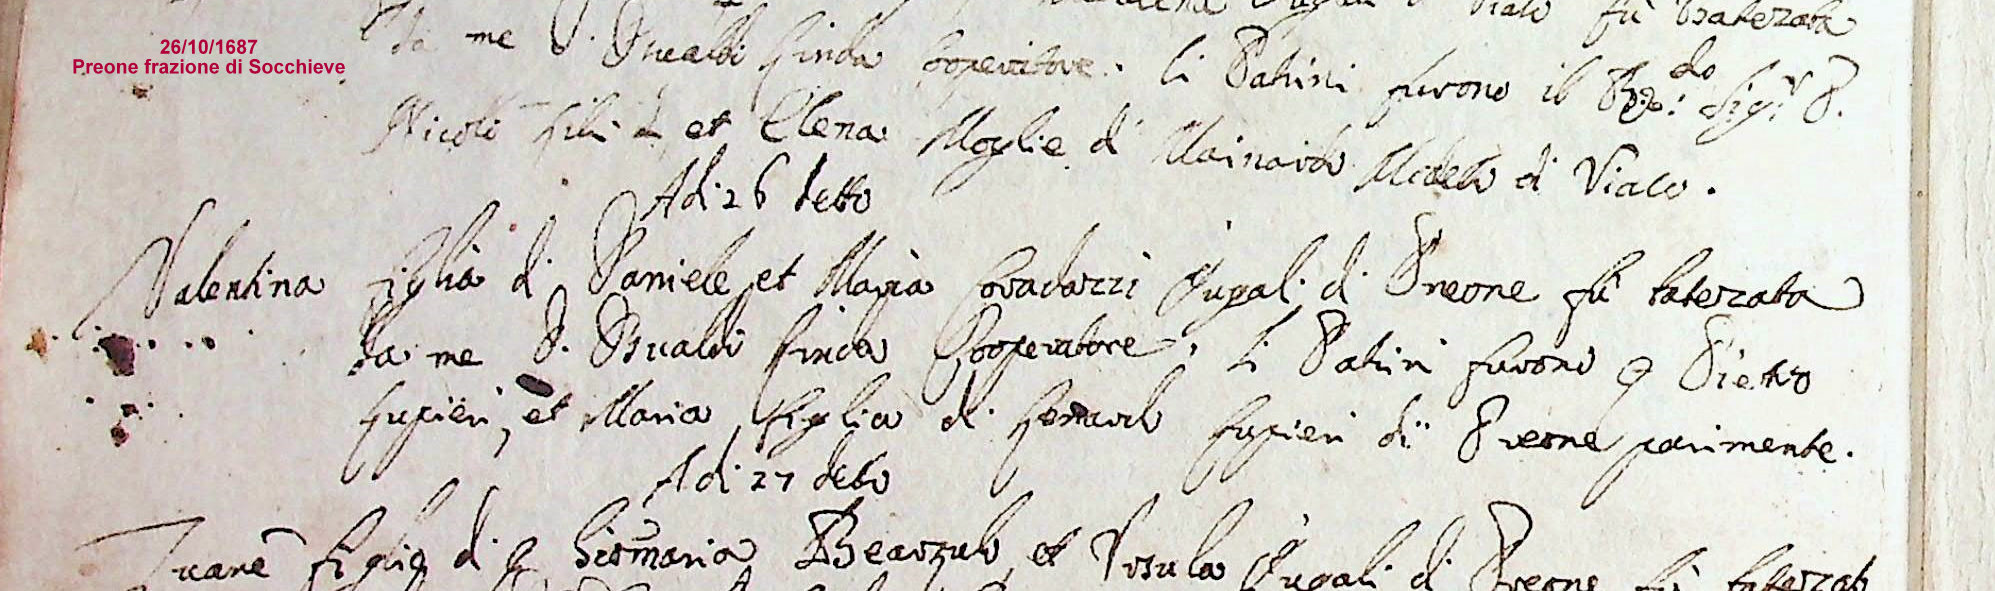 26/10/1687
Preone frazione di Socchieve
figlia di Vialo fù Baterzata
da me P. Osualdo Cooperatore. li Patrini furono il Sig.r P.
Nicolò et Elena Moglie di Mainardo di Vialo.
Adi 26 detto
Valentina figlia di Daniele et Maria Covadazzi Jugali di Preone fù baterzata
da me P. Osualdo Cooperatore, li Patrini furono q Pietro
Lupieri, et Maria figlia di Lonardo Lupieri di Preone parimente.
Adi 27 detto
Zuane figlio di q Giomaria Bearzub et Vrsula Jugali di Preone fù baterzato